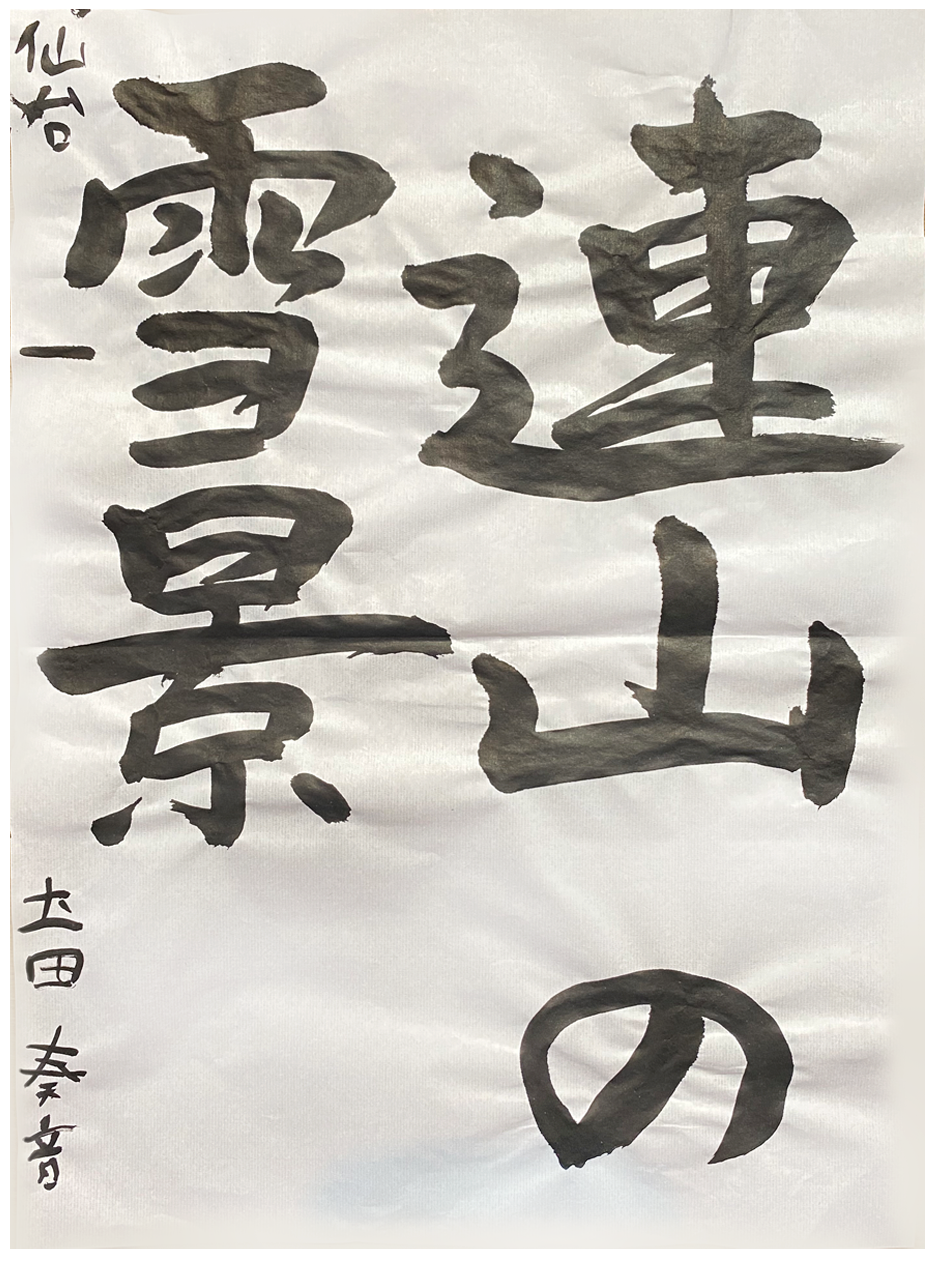 連山の
雪景
仙台 一 土田 奏音